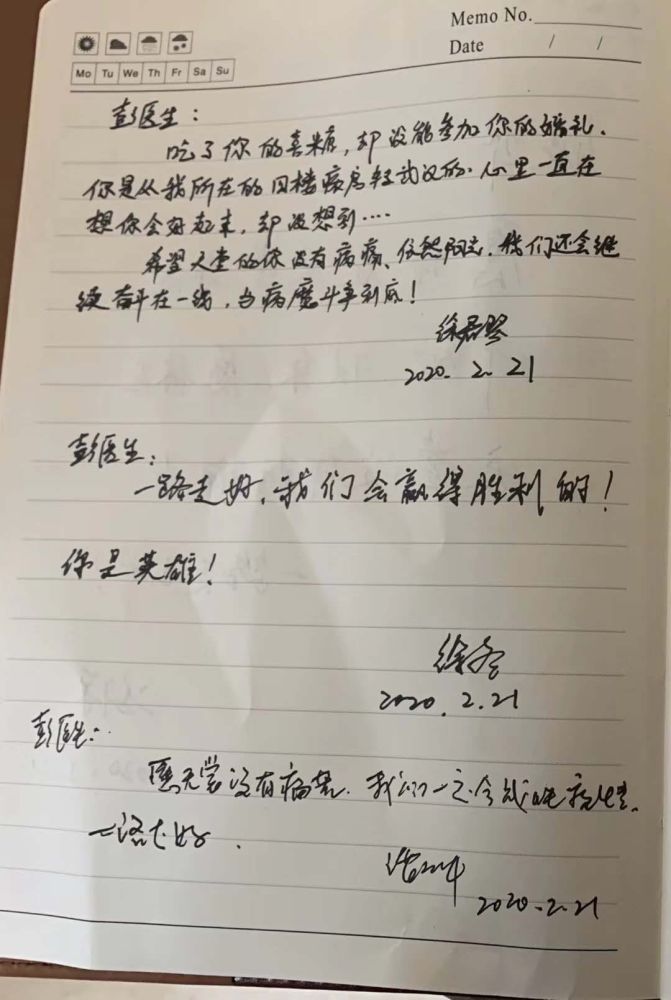 Memo No.
Date / /
Mo Tu We Th Fr Sa Su
彭医生：
吃了你的喜糖，却没能参加你的婚礼.
你是从我所在的四楼病房转武汉的.心里一直在
想你会好起来，却没想到····
希望天堂的你没有病痛、依然阳光.我们还会继
续奋斗在一线，与病魔斗争到底！
徐君
2020.2.21
彭医生：
一路走好，我们会赢得胜利的！
你是英雄！
徐
2020.2.21
彭医生：
天堂没有病苦.我们一定会战胜病
一路走好.
2020.2.21